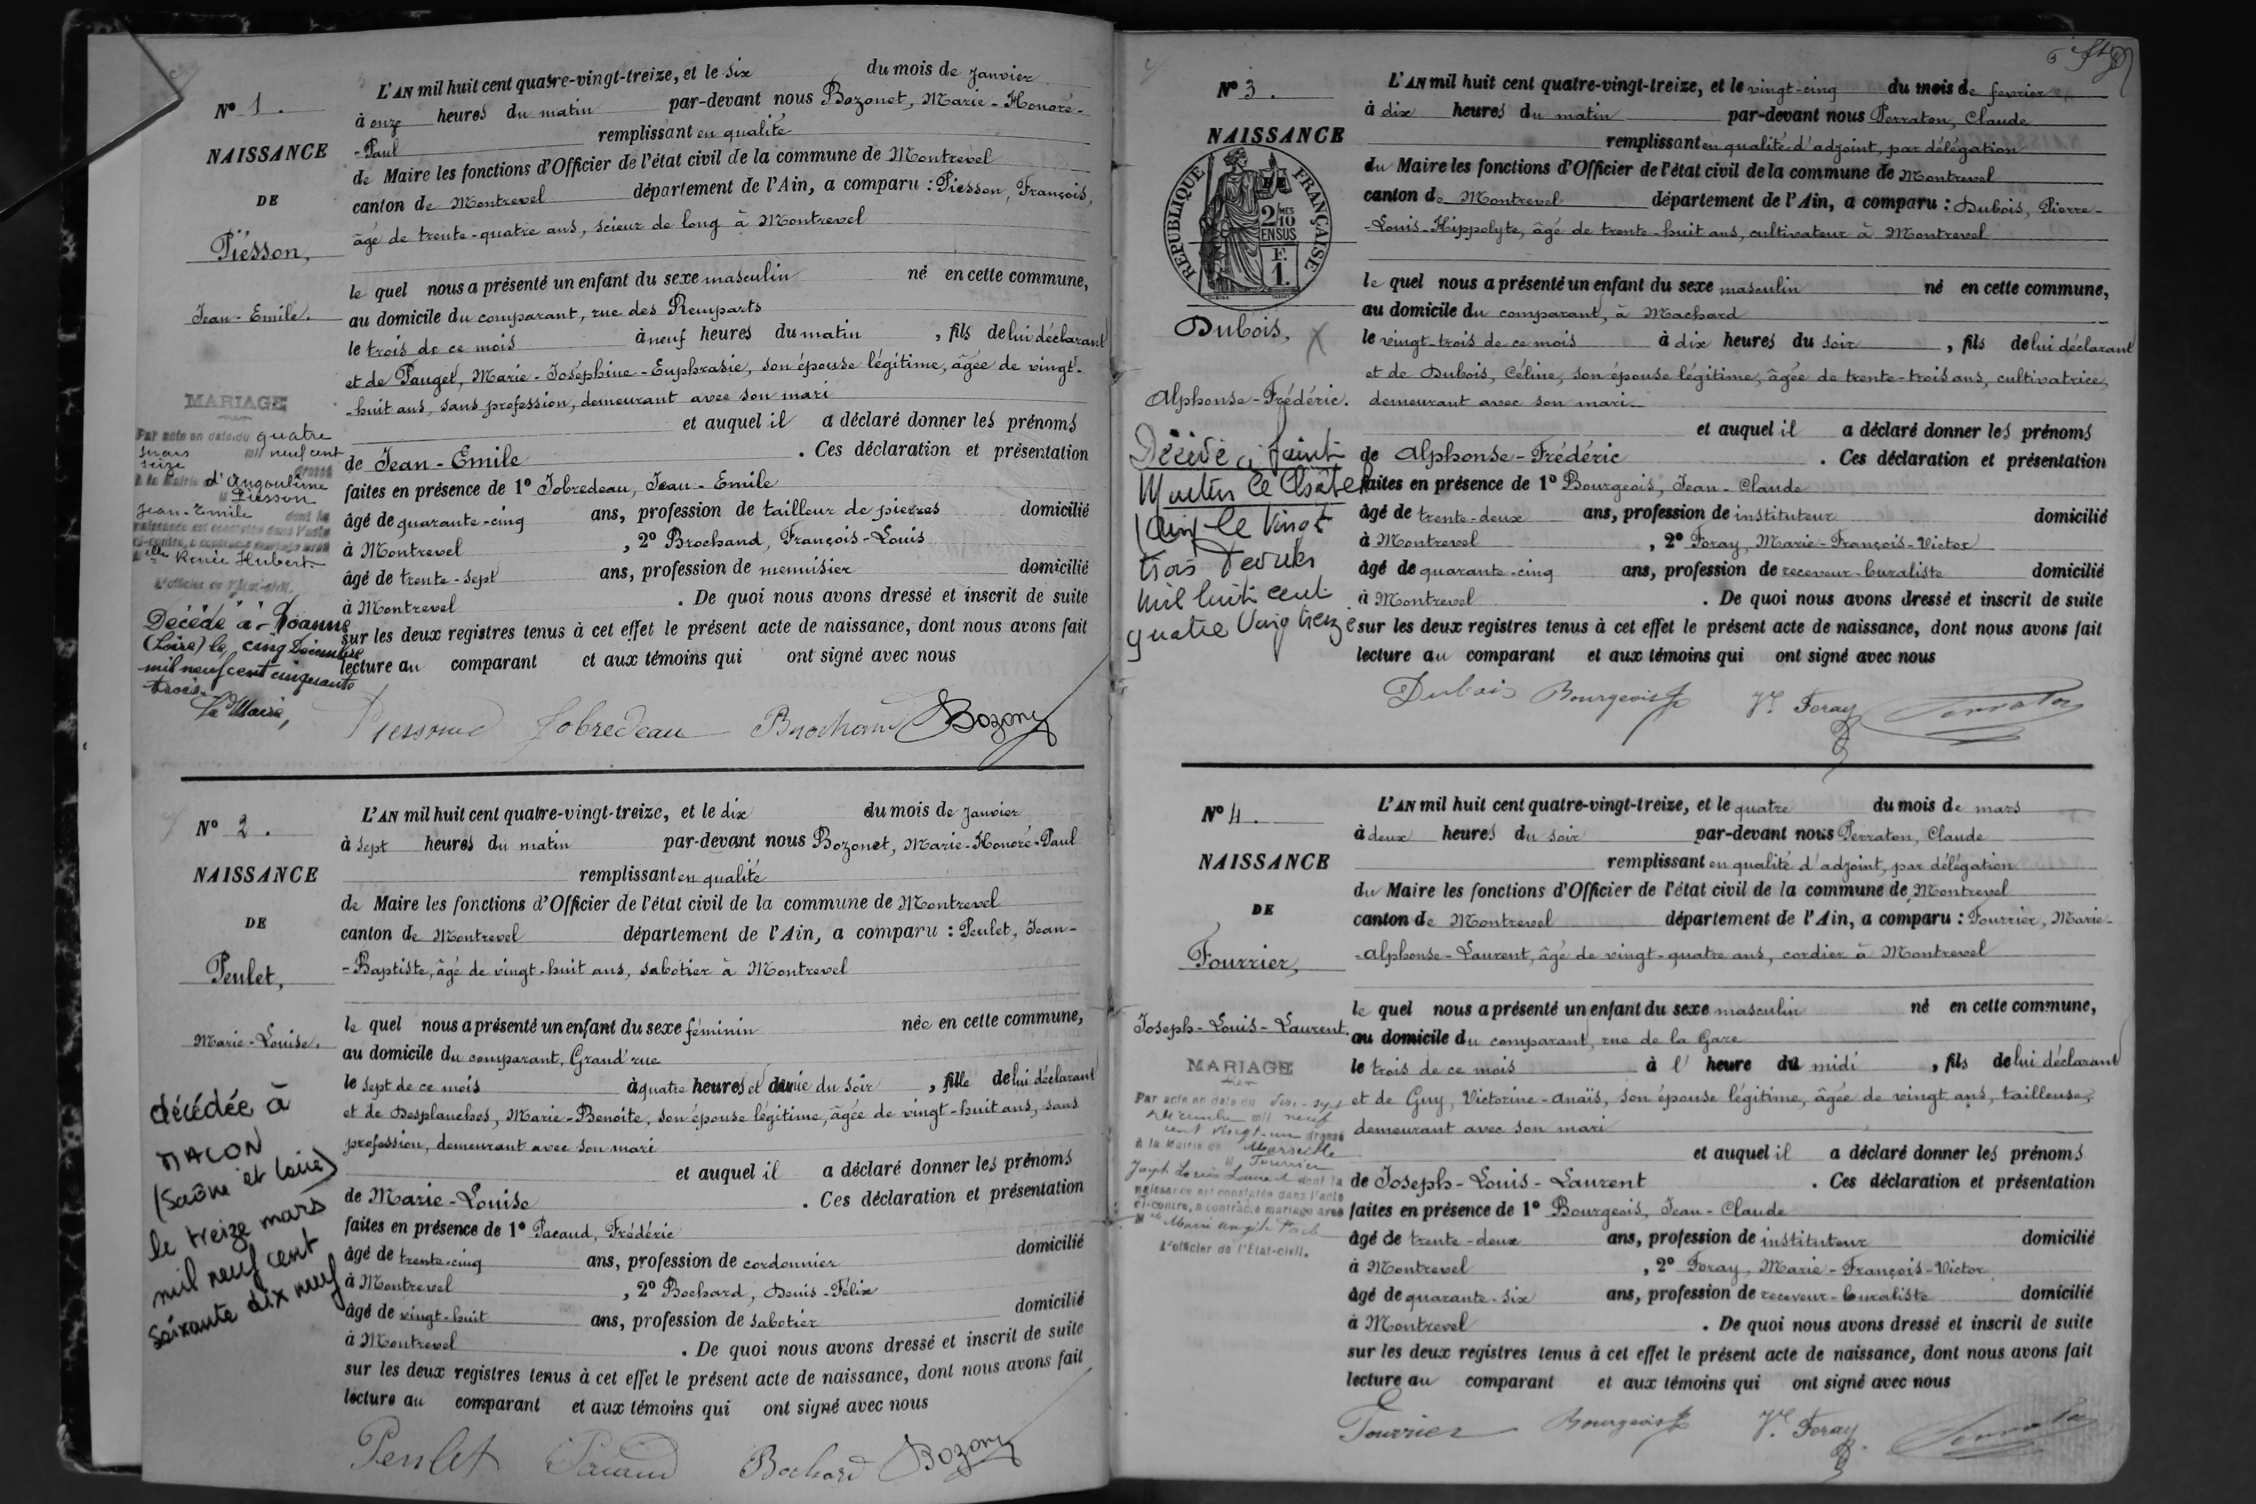 L'AN mil huit cent quatre-vingt-treize, et le six du mois de janvier
N° 1.
à onze heures du matin par-devant nous Bozonet, Marie-Honoré-
-Paul remplissant en qualité
NAISSANCE
de Maire les fonctions d'Officier de l'état civil de la commune de Montrevel
DE
canton de Montrevel département de l'Ain, a comparu : Piesson, François,
Piesson,
âgé de trente-quatre ans, scieur de long à Montrevel
le quel nous a présenté un enfant du sexe masculin né en cette commune,
Jean-Emile.
au domicile du comparant, rue des Remparts
le trois de ce mois à neuf heures du matin, fils de lui déclarant
et de Pauget, Marie-Joséphine-Euphrasie, son épouse légitime, âgée de vingt-
-huit ans, sans profession, demeurant avec son mari
et auquel il a déclaré donner les prénoms
de Jean-Emile. Ces déclaration et présentation
faites en présence de 1° Jobredeau, Jean-Emile
âgé de quarante-cinq ans, profession de tailleur de pierres domicilié
à Montrevel, 2° Brochand, François-Louis
âgé de trente-sept ans, profession de menuisier domicilié
à Montrevel. De quoi nous avons dressé et inscrit de suite
sur les deux registres tenus à cet effet le présent acte de naissance, dont nous avons fait
lecture au comparant et aux témoins qui ont signé avec nous
MARIAGE
Par acte en date du quatre
mars mil neuf cent
seize dressé
à la Mairie d'Angoulême
Piesson
Jean-Emile dont la
naissance est constatée dans l'acte
ci-contre, a contracté mariage avec
Melle Renée Hubert.
L'officier de l'Etat-civil.
Décédé à Roanne
(Loire) le cinq Décembre
mil neuf cent cinquante
trois.
Le Maire,
Jobredeau Brochand Bozonet
L'AN mil huit cent quatre-vingt-treize, et le dix du mois de janvier
N° 2.
à sept heures du matin par-devant nous Bozonet, Marie-Honoré-Paul
NAISSANCE
remplissant en qualité
de Maire les fonctions d'Officier de l'état civil de la commune de Montrevel
DE
canton de Montrevel département de l'Ain, a comparu : Penlet, Jean-
Penlet,
-Baptiste, âgé de vingt-huit ans, sabotier à Montrevel
le quel nous a présenté un enfant du sexe féminin née en cette commune,
Marie-Louise.
au domicile du comparant, Grand'rue
le sept de ce mois à quatre heures et demie du soir, fille de lui déclarant
et de Desplanches, Marie-Benoîte, son épouse légitime, âgée de vingt-huit ans, sans
profession, demeurant avec son mari
et auquel il a déclaré donner les prénoms
de Marie-Louise. Ces déclaration et présentation
faites en présence de 1° Pacaud, Frédéric
âgé de trente-cinq ans, profession de cordonnier domicilié
à Montrevel, 2° Bochard, Denis-Félix
âgé de vingt-huit ans, profession de sabotier domicilié
à Montrevel. De quoi nous avons dressé et inscrit de suite
sur les deux registres tenus à cet effet le présent acte de naissance, dont nous avons fait
lecture au comparant et aux témoins qui ont signé avec nous
décédée à
MACON
(Saône et Loire)
le treize mars
mil neuf cent
soixante dix neuf
Penlet Pacaud Bochard Bozonet
L'AN mil huit cent quatre-vingt-treize, et le vingt-cinq du mois de fevrier
N° 3.
à dix heures du matin par-devant nous Perraton, Claude
NAISSANCE
remplissant en qualité d'adjoint, par délégation
du Maire les fonctions d'Officier de l'état civil de la commune de Montrevel
RÉPUBLIQUE FRANÇAISE
2/10MES EN SUS
F. 1.
canton de Montrevel département de l'Ain, a comparu : Dubois, Pierre-
-Louis-Hippolyte, âgé de trente-huit ans, cultivateur à Montrevel
le quel nous a présenté un enfant du sexe masculin né en cette commune,
au domicile du comparant, à Machard
Dubois,
le vingt-trois de ce mois à dix heures du soir, fils de lui déclarant
et de Dubois, Céline, son épouse légitime, âgée de trente-trois ans, cultivatrice,
Alphonse-Frédéric.
demeurant avec son mari
et auquel il a déclaré donner les prénoms
de Alphonse-Frédéric. Ces déclaration et présentation
faites en présence de 1° Bourgeois, Jean-Claude
âgé de trente-deux ans, profession de instituteur domicilié
à Montrevel, 2° Foray, Marie-François-Victor
âgé de quarante-cinq ans, profession de receveur-buraliste domicilié
à Montrevel. De quoi nous avons dressé et inscrit de suite
sur les deux registres tenus à cet effet le présent acte de naissance, dont nous avons fait
lecture au comparant et aux témoins qui ont signé avec nous
Décédé à Saint
Martin le Châtel
(Ain) le vingt
trois
mil huit cent
quatre vingt treize
Dubois Bourgeois Vr Foray Perraton
L'AN mil huit cent quatre-vingt-treize, et le quatre du mois de mars
N° 4.
à deux heures du soir par-devant nous Perraton, Claude
NAISSANCE
remplissant en qualité d'adjoint, par délégation
du Maire les fonctions d'Officier de l'état civil de la commune de Montrevel
DE
canton de Montrevel département de l'Ain, a comparu : Fourrier, Marie-
Fourrier,
-Alphonse-Laurent, âgé de vingt-quatre ans, cordier à Montrevel
le quel nous a présenté un enfant du sexe masculin né en cette commune,
Joseph-Louis-Laurent.
au domicile du comparant, rue de la Gare
le trois de ce mois à l'heure du midi, fils de lui déclarant
et de Guy, Victorine-Anaïs, son épouse légitime, âgée de vingt ans, tailleuse,
demeurant avec son mari
et auquel il a déclaré donner les prénoms
de Joseph-Louis-Laurent. Ces déclaration et présentation
faites en présence de 1° Bourgeois, Jean-Claude
âgé de trente-deux ans, profession de instituteur domicilié
à Montrevel, 2° Foray, Marie-François-Victor
âgé de quarante-six ans, profession de receveur-buraliste domicilié
à Montrevel. De quoi nous avons dressé et inscrit de suite
sur les deux registres tenus à cet effet le présent acte de naissance, dont nous avons fait
lecture au comparant et aux témoins qui ont signé avec nous
MARIAGE
Par acte en date du
mil neuf
cent vingt-un dressé
à la Mairie de Marseille
Fourrier
Joseph Louis Laurent dont la
naissance est constatée dans l'acte
ci-contre, a contracté mariage avec
L'officier de l'Etat-civil.
Fourrier Bourgeois Vr Foray Perraton